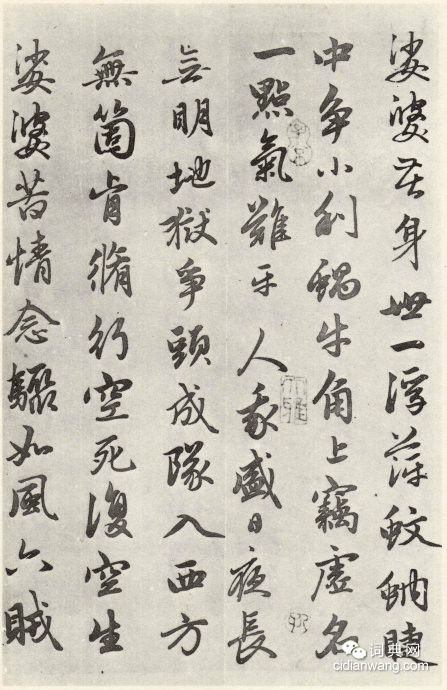 娑婆苦身世一浮萍蚊蚋睫
中争小利蝸牛角上竊虛名
一點氣難平人我盛日夜長
无明地獄爭頭成隊入西方
無箇肯脩行空死復空生
娑婆苦情念驟如風六賊
词典网
cidianwang.com